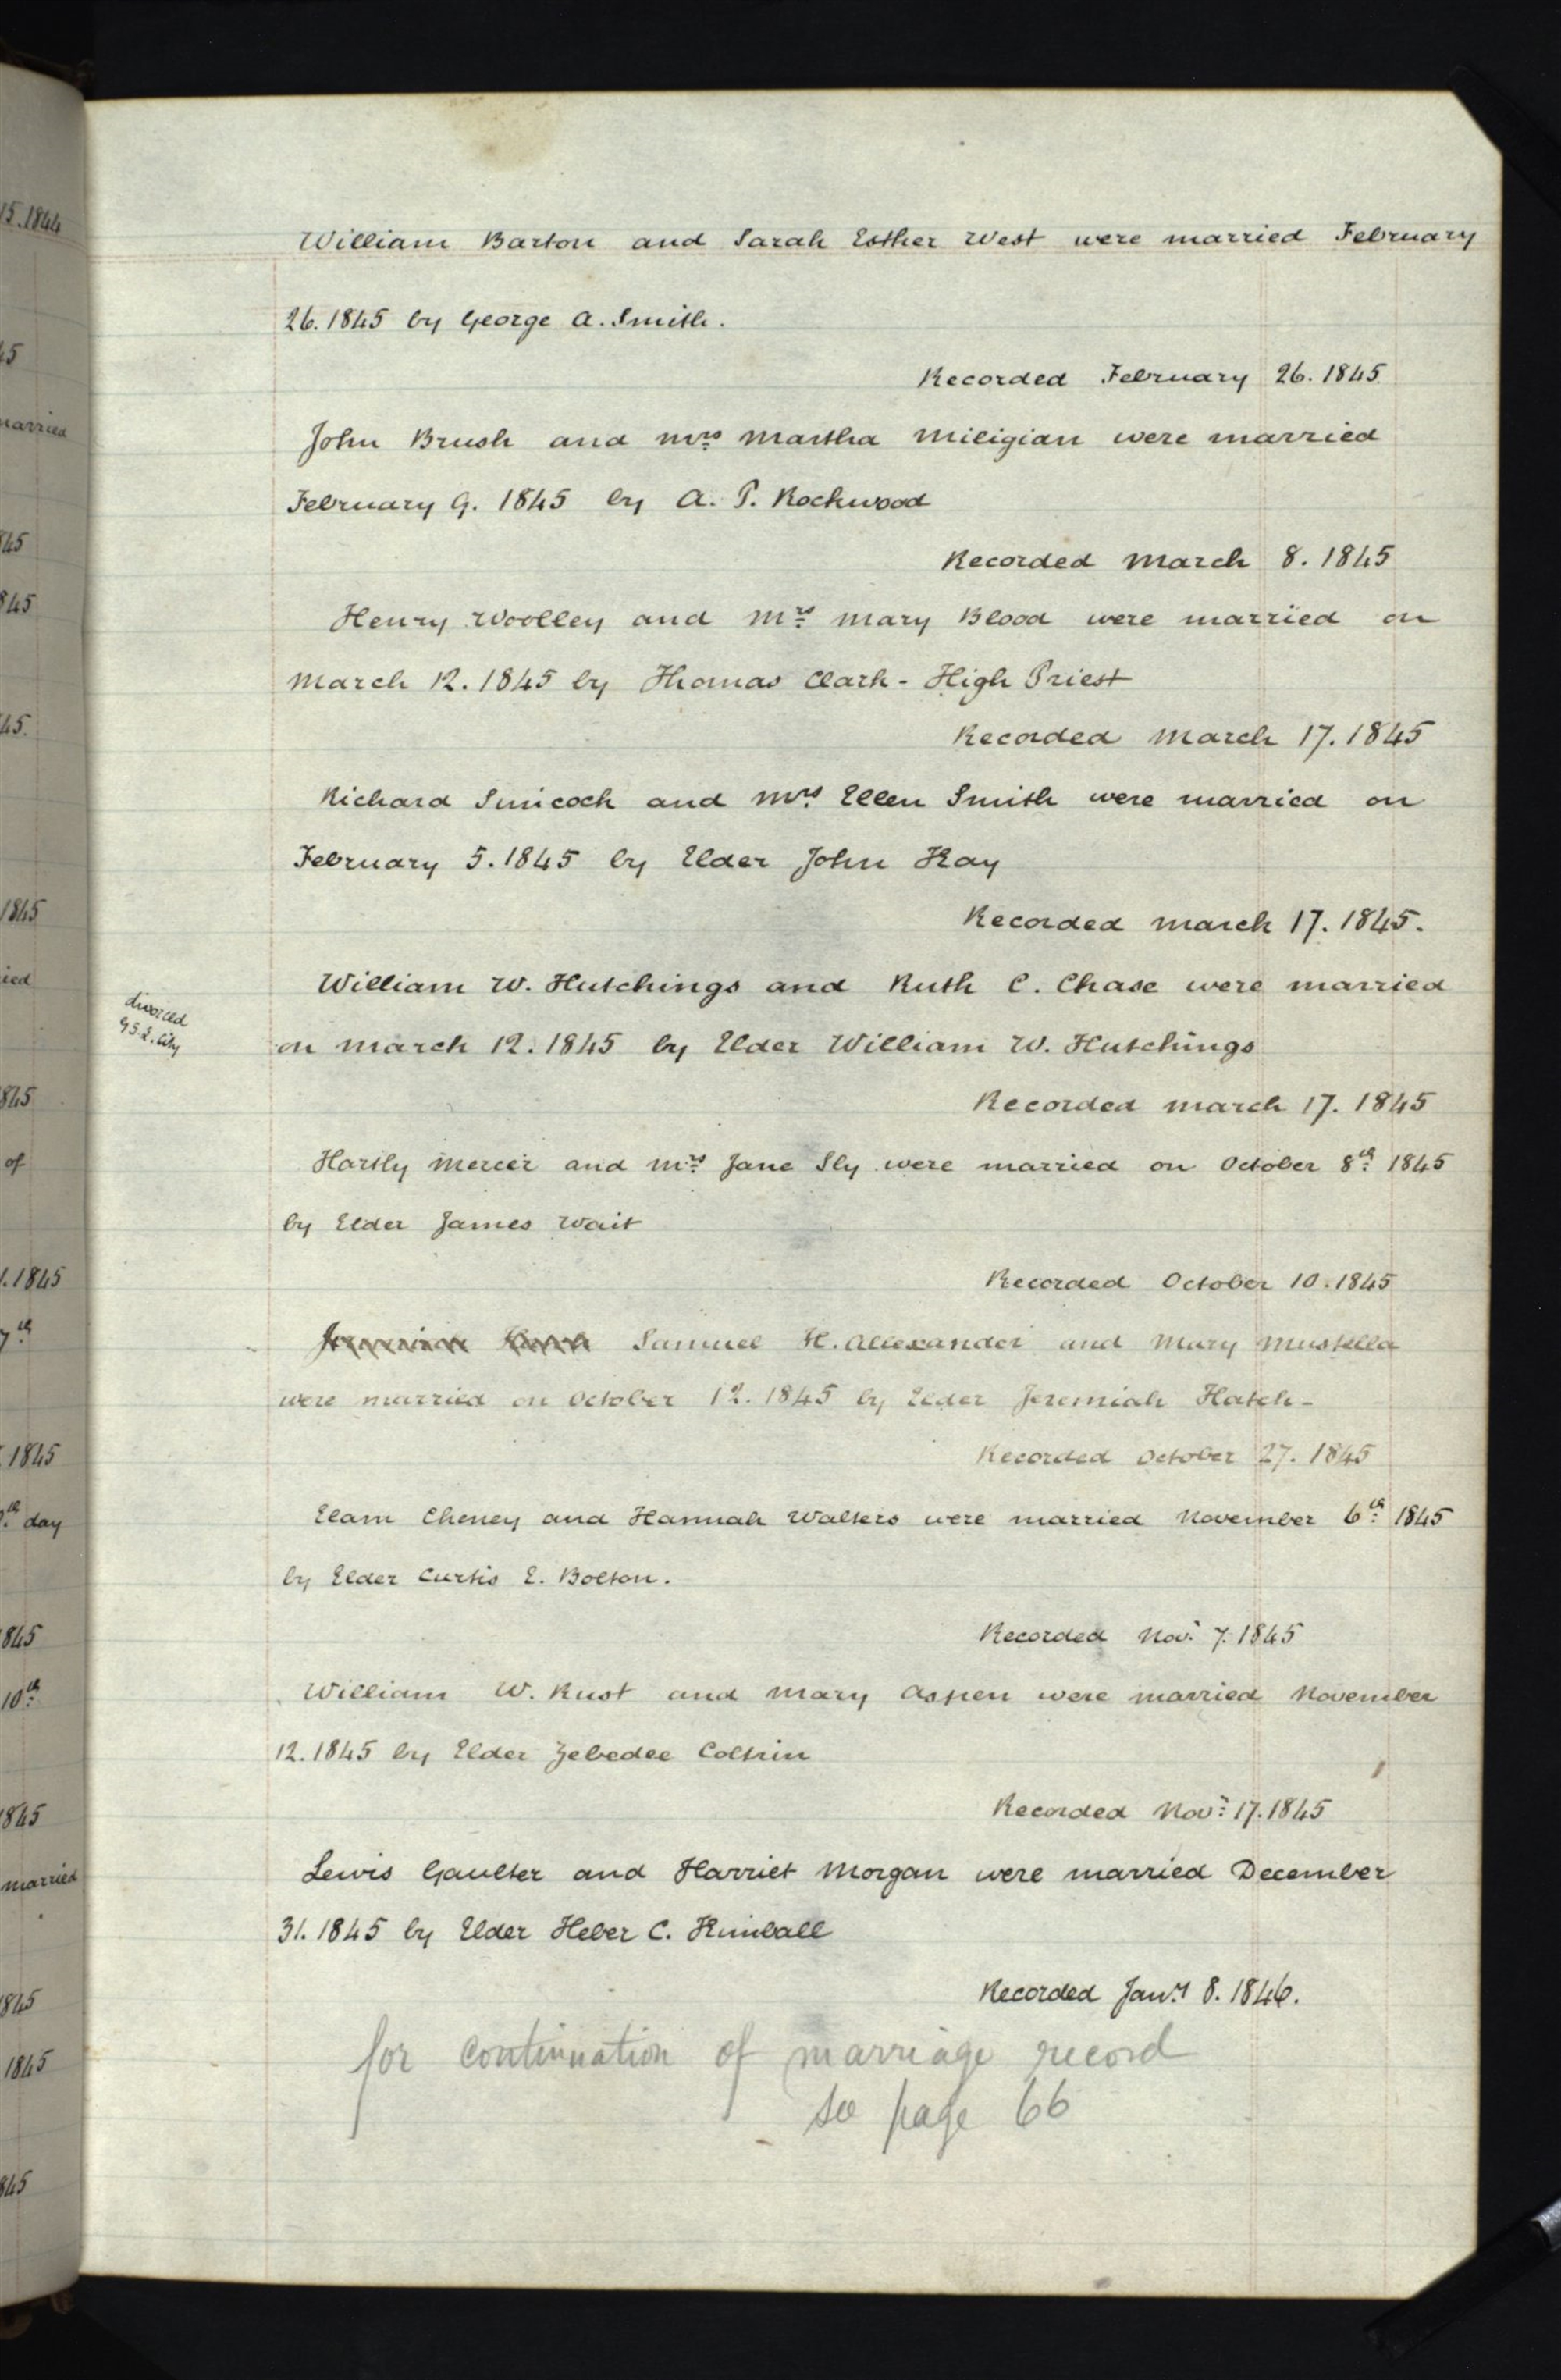 William Barton and Sarah Esther West were married February
26. 1845 by George A. Smith.
Recorded February 26. 1845
John Brush and Mrs Martha Miligian were married
February 9. 1845 by A. P. Rockwood
Recorded March 8. 1845
Henry Woolley and Mrs Mary Blood were married on
March 12. 1845 by Thomas Clark - High Priest
Recorded March 17. 1845
Richard Simcock and Mrs Ellen Smith were married on
February 5. 1845 by Elder John Kay
Recorded March 17. 1845.
William W. Hutchings and Ruth C. Chase were married
divorced
on March 12. 1845 by Elder William W. Hutchings
Recorded March 17. 1845
Hartly Mercer and Mrs Jane Sly were married on October 8th 1845
by Elder James Wait
Recorded October 10. 1845
Samuel H. Allexander and Mary Muskella
were married on October 12. 1845 by Elder Jeremiah Hatch-
Recorded October 27. 1845
Elam Cheney and Hannah Walters were married November 6th 1845
by Elder Curtis E. Bolton.
Recorded Nov. 7. 1845
William W. Rust and Mary Aspen were married November
12. 1845 by Elder Zebedee Coltrin
Recorded Novr 17. 1845
Lewis Gaulter and Harriet Morgan were married December
31. 1845 by Elder Heber C. Kimball
Recorded Jany 8. 1846.
for continuation of marriage record
see page 66
15. 1844
45
married
845
845
45.
1845
ied
845
of
1. 1845
7th
1845
th day
845
10th
1845
married
1845
1845
845